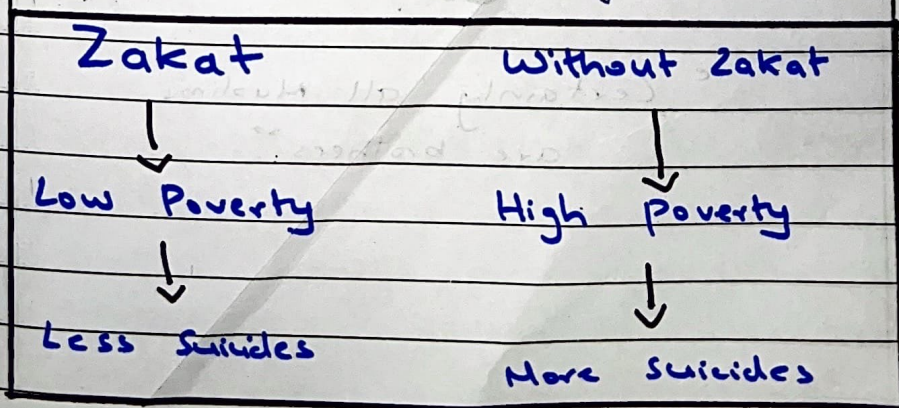 Zakat
Low Poverty
Less Suicides
Without Zakat
High Poverty
More Suicides